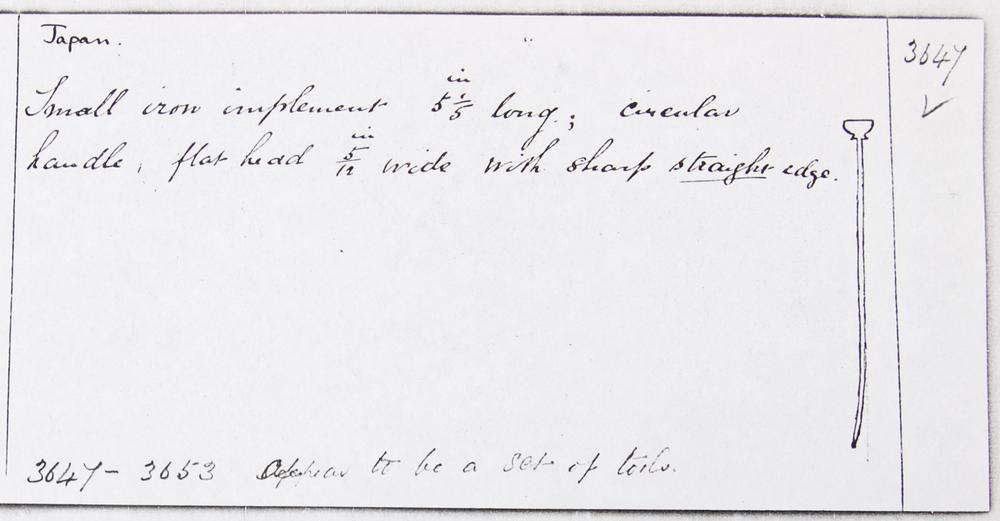 Japan.
3647
Small iron implement 5 1/5 in long; circular
handle, flat head 5/12 in wide with sharp straight edge.
3647 – 3653 Appear to be a set of tools.